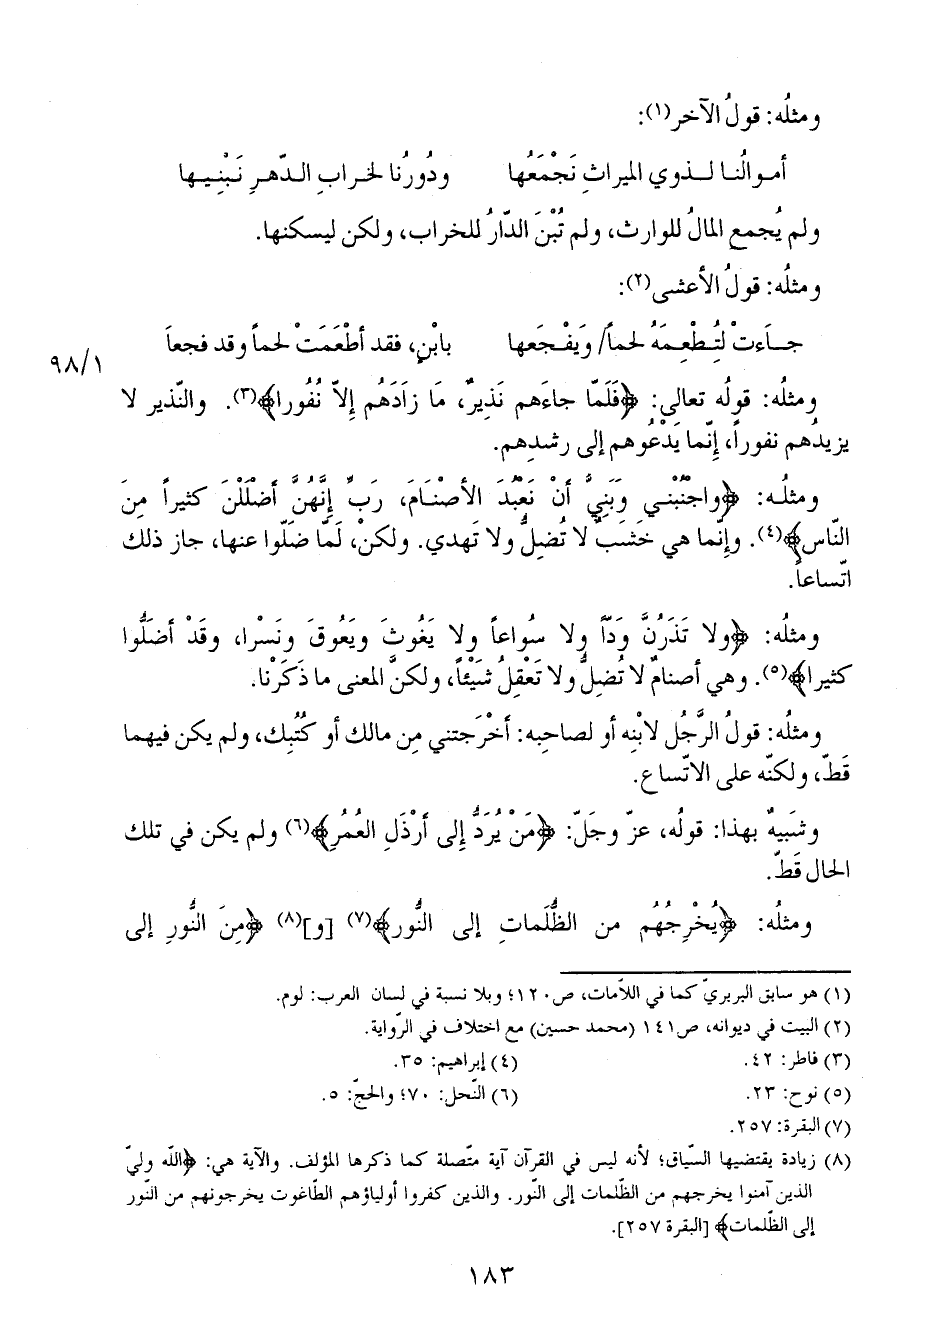 ومثلُه: قولُ الآخر(١):
أموالُنا لذوي الميراثِ نَجْمَعُها ودُورُنا لخرابِ الدّهرِ نَبْنِيها
ولم يُجمع المالُ للوارث، ولم تُبْنَ الدّارُ للخراب، ولكن ليسكنها.
ومثلُه: قولُ الأعشى(٢):
جاءَتْ لتُطْعِمَهُ لحماً/ وَيَفْجَعَها بابْنٍ، فقد أطْعَمَتْ لحماً وقد فجعاَ
٩٨/١
ومثلُه: قولُه تعالى: ﴿فَلَمّا جاءَهم نَذِيرٌ، مَا زَادَهُم إلاّ نُفُورا﴾(٣). والنّذير لا
يزيدُهم نفوراً، إنّما يَدْعُوهم إلى رشدِهم.
ومثلُه: ﴿واجْنُبْني وَبَنِيَّ أنْ نَعْبُدَ الأصْنَامَ، رَبِّ إنَّهُنَّ أضْلَلْنَ كثيراً مِنَ
النّاس﴾(٤). وإنّما هي خَشَبٌ لا تُضِلُّ ولا تَهدي. ولكنْ، لَمّا ضَلّوا عنها، جاز ذلك
اتّساعاً.
ومثلُه: ﴿ولا تَذَرُنَّ وَدّاً ولا سُواعاً ولا يَغُوثَ ويَعُوقَ ونَسْرا، وقَدْ أضَلُّوا
كثيرا﴾(٥). وهي أصنامٌ لا تُضِلُّ ولا تَعْقِلُ شَيْئاً، ولكنَّ المعنى ما ذَكَرْنا.
ومثلُه: قولُ الرَّجُل لابْنِه أو لصاحبِه: أخْرَجتني مِن مالك أو كُتُبِك، ولم يكن فيهما
قَطّ، ولكنّه على الاتّساع.
وشبيهٌ بهذا: قولُه، عزّ وجَلّ: ﴿مَنْ يُرَدُّ إلى أرْذَلِ العُمُرِ﴾(٦) ولم يكن في تلك
الحال قَطّ.
ومثلُه: ﴿يُخْرِجُهُم من الظُّلَماتِ إلى النُّور﴾(٧) [و](٨) ﴿مِنَ النُّورِ إلى
(١) هو سابق البربريّ كما في اللاّمات، ص١٢٠؛ وبلا نسبة في لسان العرب: لوم.
(٢) البيت في ديوانه، ص١٤١ (محمد حسين) مع اختلاف في الرّواية.
(٣) فاطر: ٤٢. (٤) إبراهيم: ٣٥.
(٥) نوح: ٢٣. (٦) النّحل: ٧٠؛ والحجّ: ٥.
(٧) البقرة: ٢٥٧.
(٨) زيادة يقتضيها السّياق؛ لأنه ليس في القرآن آية متّصلة كما ذكرها المؤلف. والآية هي: ﴿الله وليّ
الذين آمنوا يخرجهم من الظّلمات إلى النّور. والذين كفروا أولياؤهم الطّاغوت يخرجونهم من النّور
إلى الظّلمات﴾ [البقرة ٢٥٧].
١٨٣